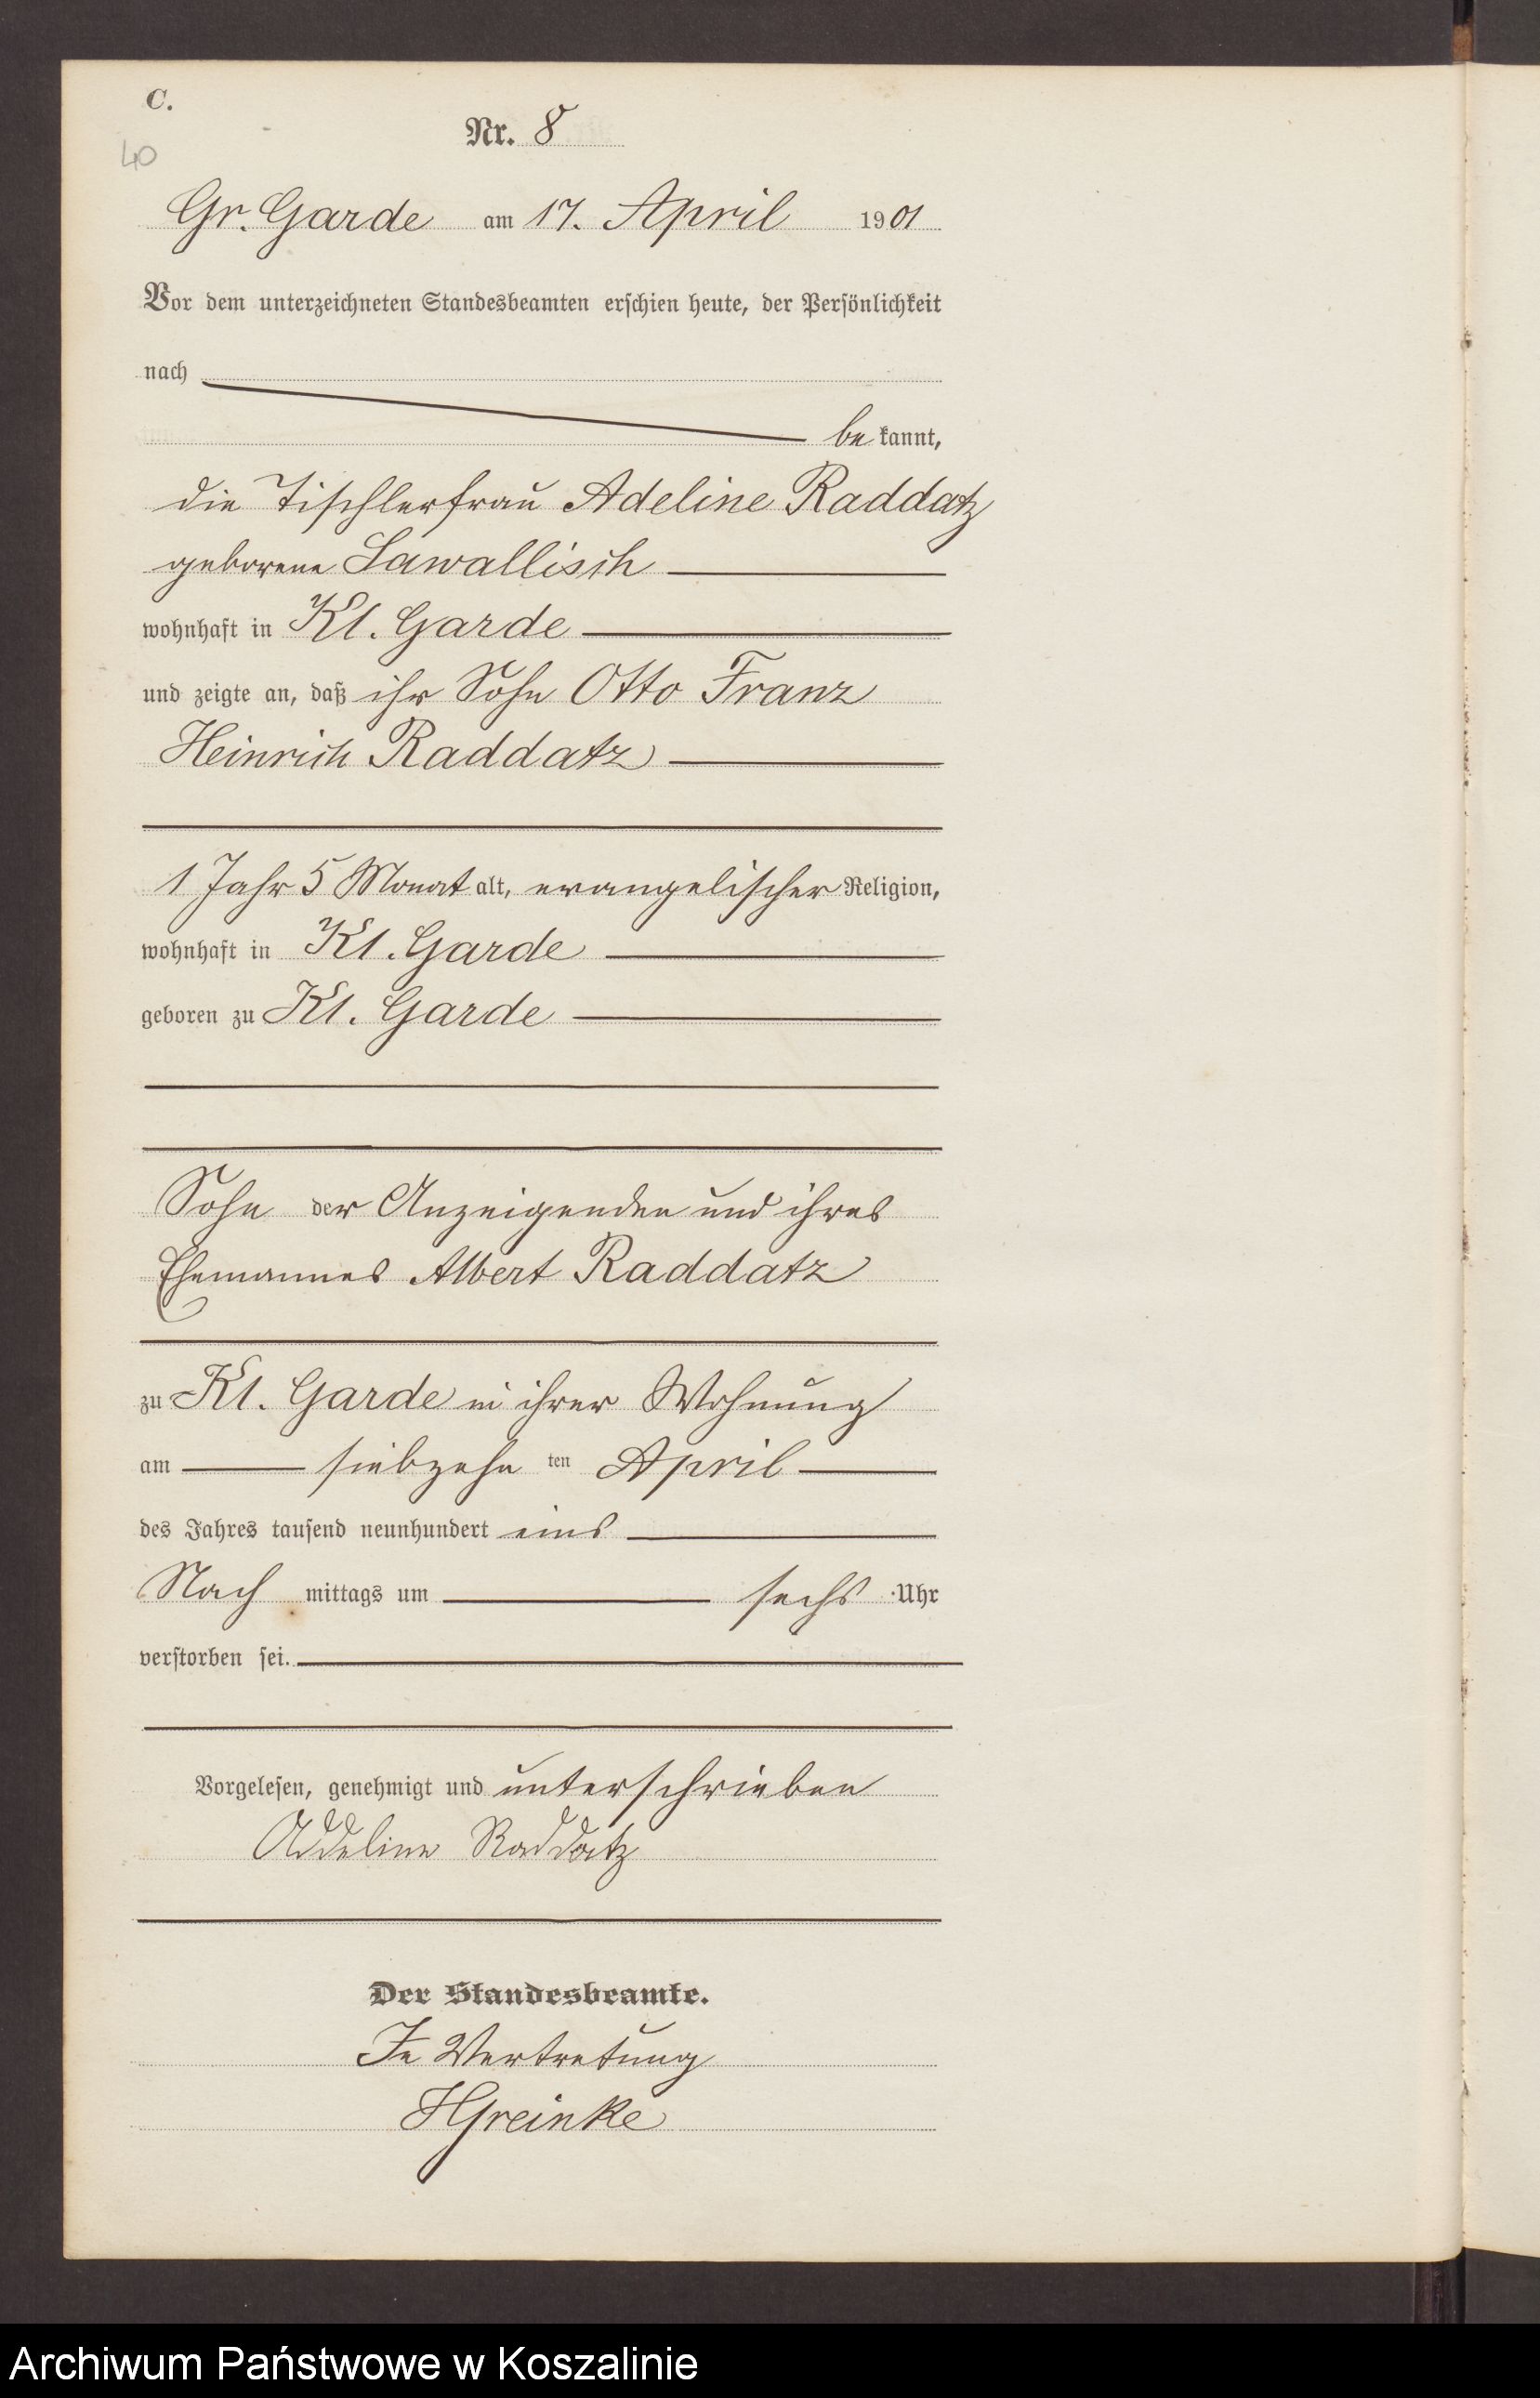 C.
40
Nr. 8
Gr. Garde am 17. April 1901
Vor dem unterzeichneten Standesbeamten erschien heute, der Persönlichkeit
nach
be kannt,
die Tischlerfrau Adeline Raddatz
geborene Lawallisch
wohnhaft in Kl. Garde
und zeigte an, daß ihr Sohn Otto Franz
Heinrich Raddatz
1 Jahr 5 Monat alt, evangelischer Religion,
wohnhaft in Kl. Garde
geboren zu Kl. Garde
Sohn der Anzeigenden und ihres
Ehemannes Albert Raddatz
zu Kl. Garde in ihrer Wohnung
am siebzehn ten April
des Jahres tausend neunhundert eins
Nach mittags um sechs Uhr
verstorben sei.
Vorgelesen, genehmigt und unterschrieben
Addeline Raddatz
Der Standesbeamte.
In Vertretung
HGreinke
Archiwum Państwowe w Koszalinie